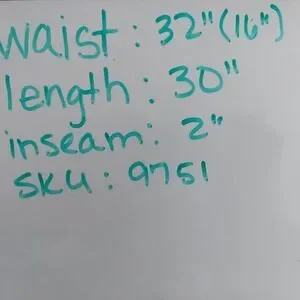 waist: 32"(16")
length: 30"
inseam: 2"
SKU: 9751